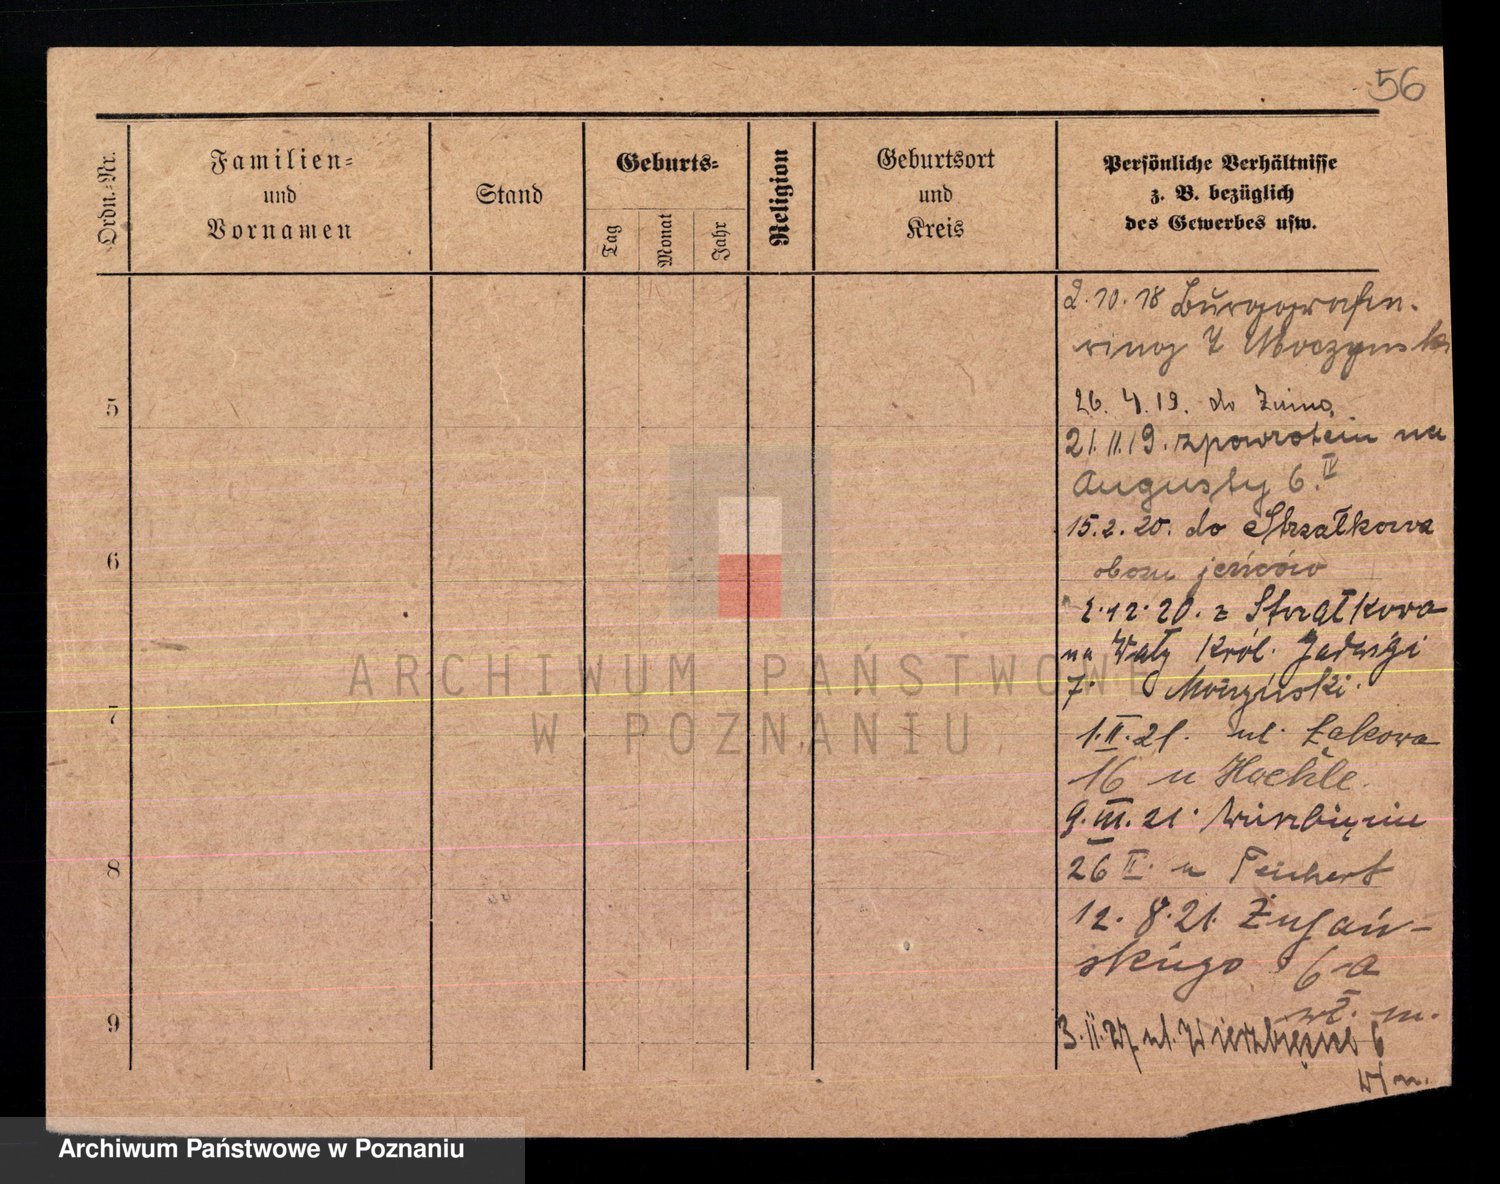 56
Ordn.=Nr.
Familien=
und
Vornamen
Stand
Geburts=
Tag
Monat
Jahr
Religion
Geburtsort
und
Kreis
Persönliche Verhältnisse
z. B. bezüglich
des Gewerbes usw.
2.10.18 Burggrafen-
ring 7 Moczynski
5
26.4.19. do Żnina
21.11.19. zpowrotem na
Augusty 6. IV
15.2.20. do Strzałkowa
6
obozu jeńców
2.12.20. z Strzałkowa
na Wały Król. Jadwigi
7
7
1.II.21. ul. Łąkowa
16 u
9.III.21. Wierzbięcin
8
26 II. u Teichert
12.8.21. Żupań-
skiego 6a
wł. m.
9
3.II.27 ul. Wierzbięcice 6
wł m.
ARCHIWUM PAŃSTWOWE
W POZNANIU
Archiwum Państwowe w Poznaniu